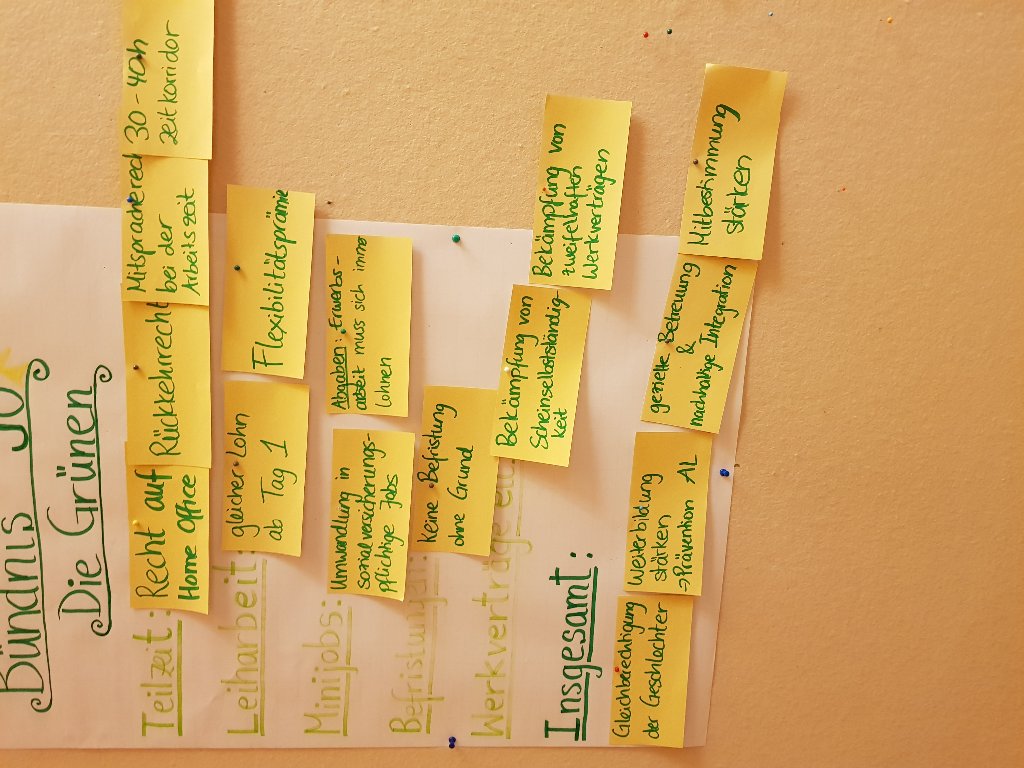 Bündnis 90
Die Grünen
Teilzeit:
Recht auf
Home Office
Rückkehrrecht
Mitspracherech
bei der
Arbeitszeit
30-40h
Zeitkorridor
Leiharbeit:
gleicher Lohn
ab Tag 1
Flexibilitätsprämie
Minijobs:
Umwandlung in
sozialversicherungs-
pflichtige Jobs
Abgaben: Erwerbs-
arbeit muss sich immer
lohnen
Befristungen:
keine Befristung
ohne Grund
Werkverträge
Bekämpfung von
Scheinselbstständig
keit
Bekämpfung von
zweifelhaften
Werkverträgen
Insgesamt:
Gleichberechtigung
der Geschlechter
Weiterbildung
stärken
→ Prävention AL
gezielte Betreuung
&
nachhaltige Integration
Mitbestimmung
stärken